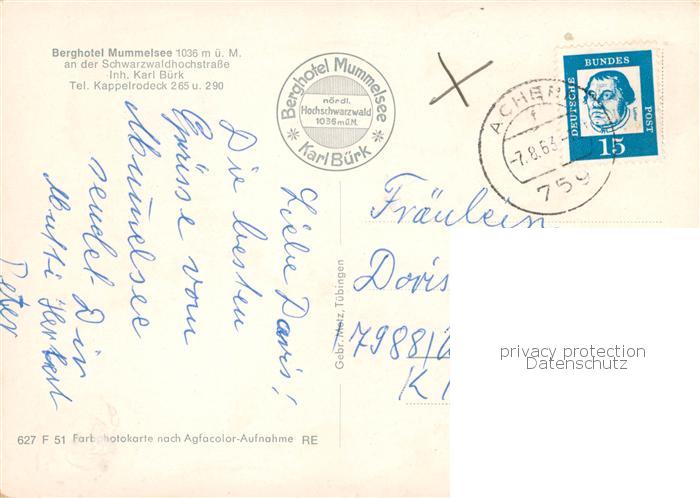 Berghotel Mummelsee 1036 m ü. M.
an der Schwarzwaldhochstraße
Inh. Karl Bürk
Tel. Kappelrodeck 265 u. 290
Berghotel Mummelsee
nördl.
Hochschwarzwald
1036 m ü. M.
Karl Bürk
DEUTSCHE BUNDES POST
15
ACHERN
-7.8.63
759
Liebe Doris!
Die besten
Grüsse vom
Mummelsee
sendet Dir
Mutti Herbert
Peter
Fräulein
Doris
7988/
Gebr. Metz, Tübingen
627 F 51 Farbphotokarte nach Agfacolor-Aufnahme RE
privacy protection
Datenschutz